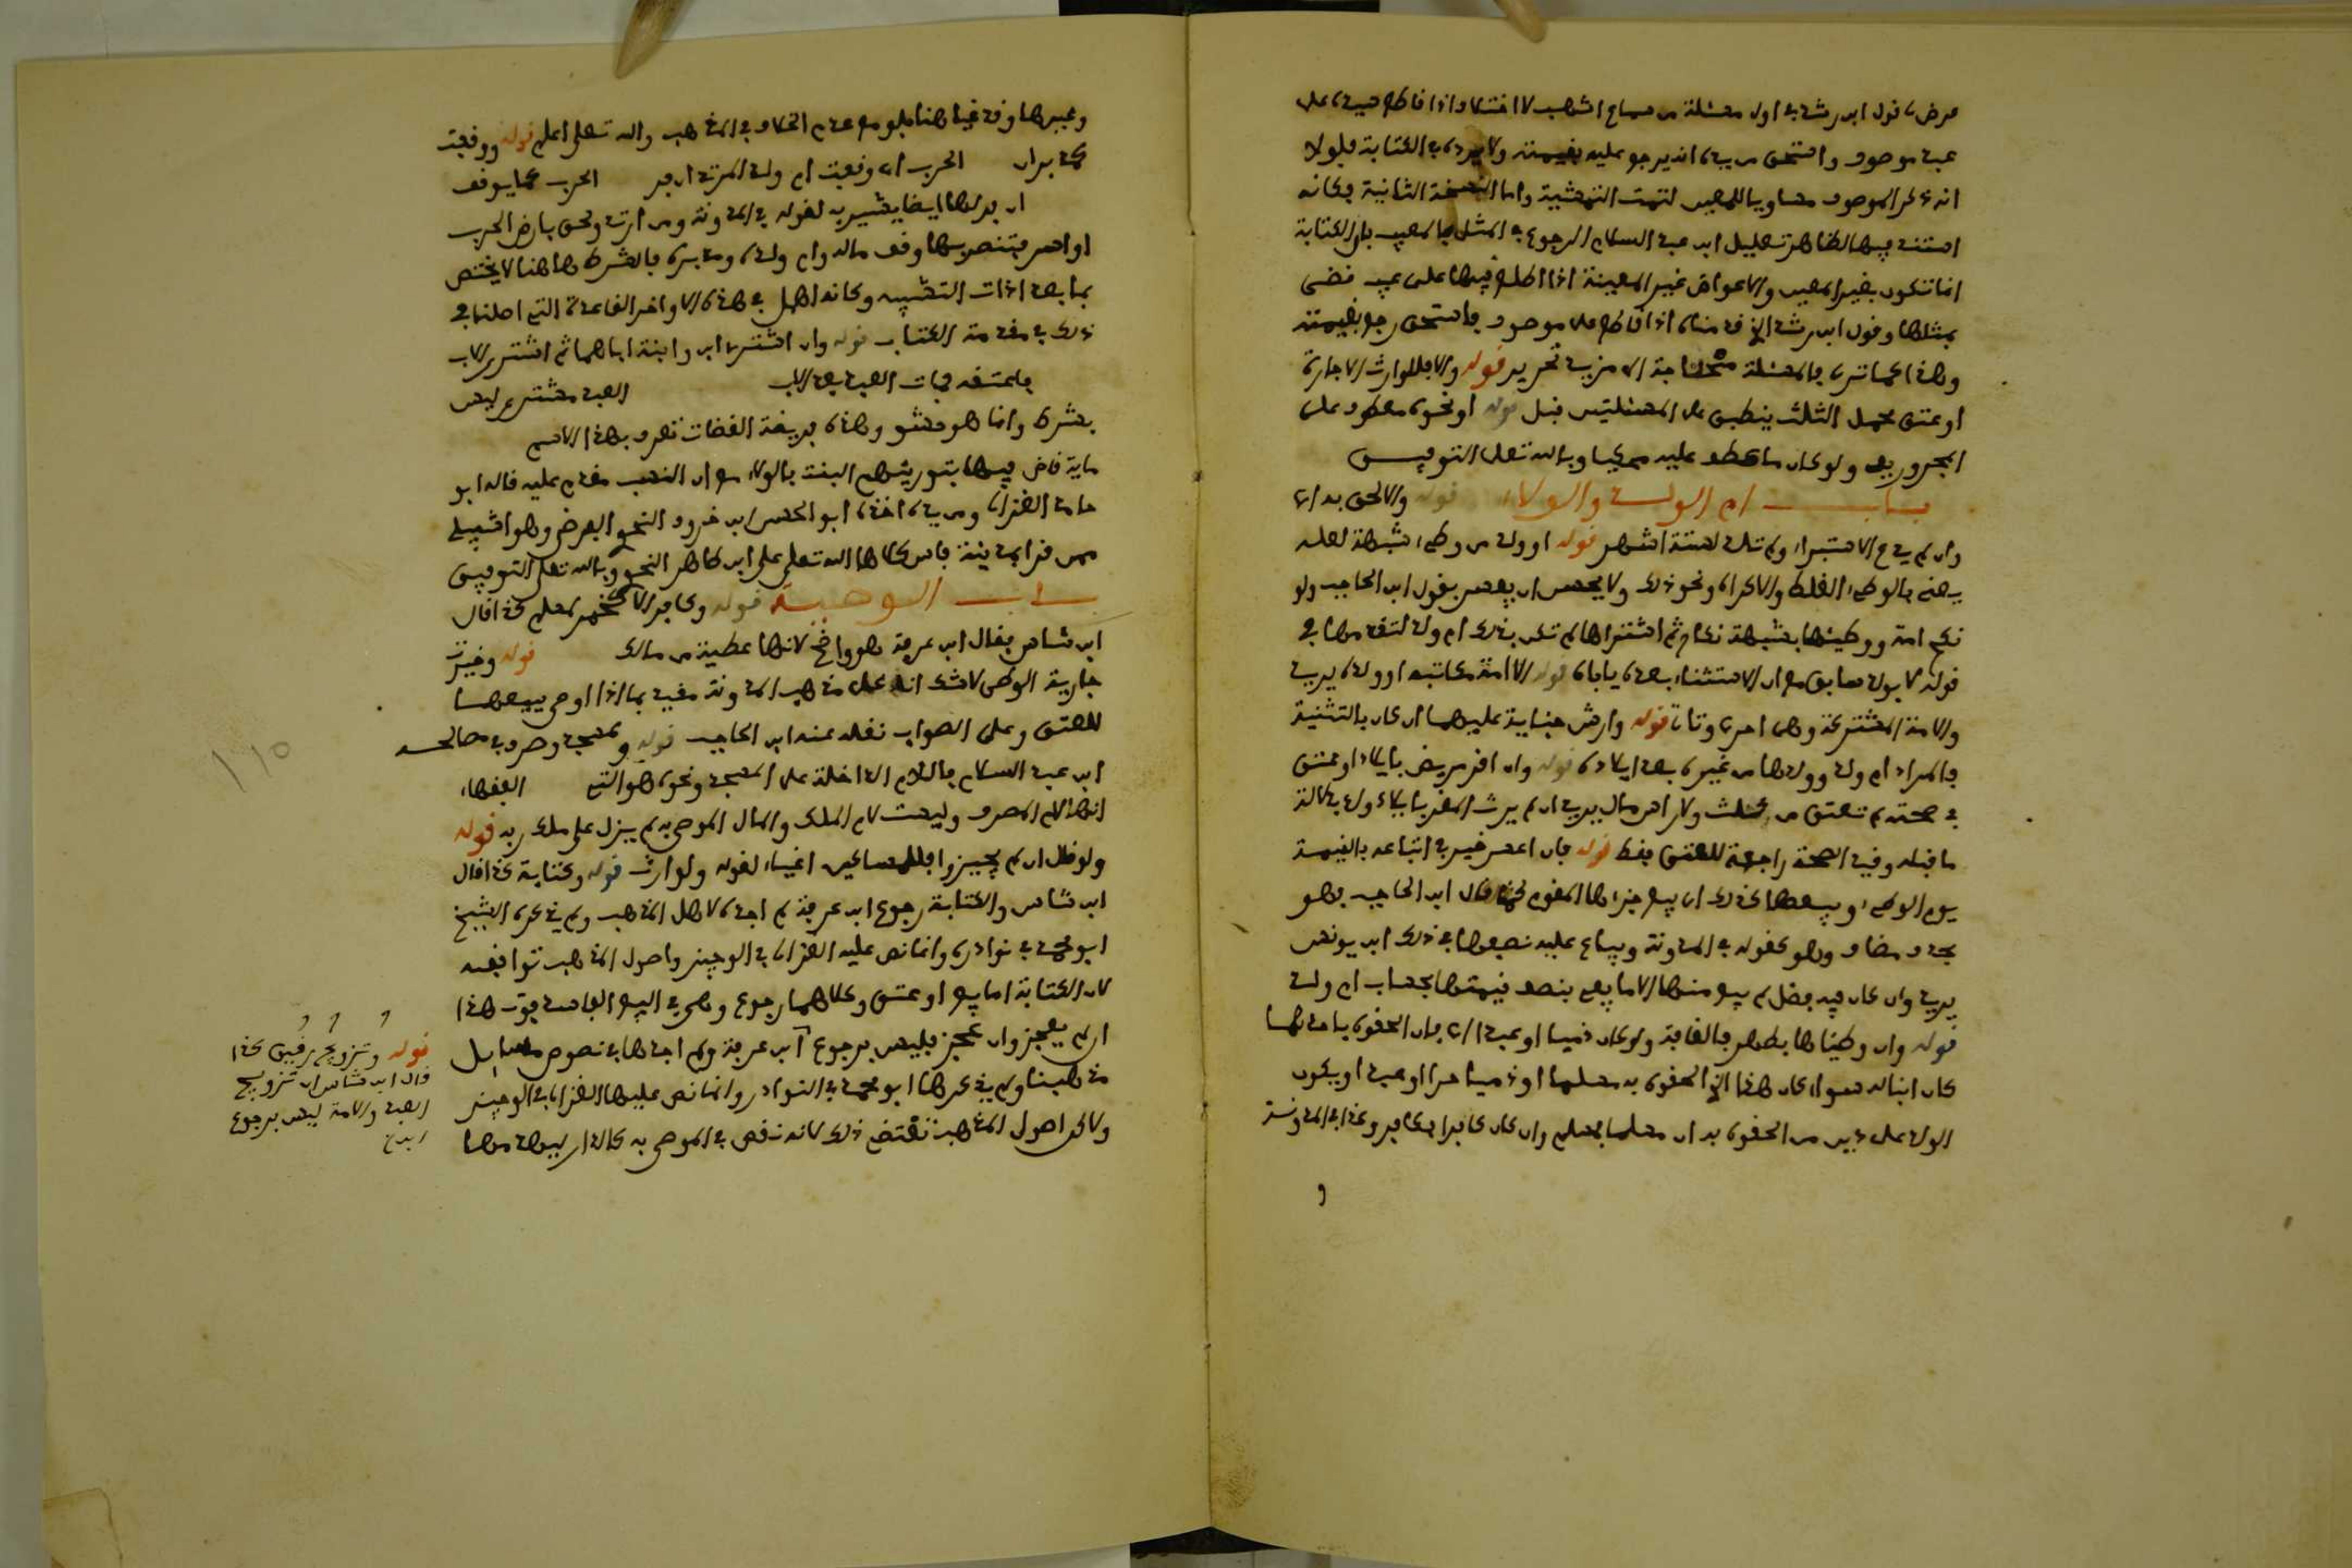 عرض، قول ابن رشد في اول مسئلة من سماع اشهب لا اختلاف اذا قاطع سيده على
عبد موصوف واستحق من يده انه يرجع عليه بقيمته ولا يرد في الكتابة فلولا
انه ذكر الموصوف مساويا للمعين لتمت التمشية واما النسخة الثانية فكانه
استند فيها لظاهر تعليل ابن عبد السلام الرجوع في المثل بالمعيب بان الكتابة
انما تكون بغير المعين والاعواض غير المعينة اذا اطلع فيها على عيب قضى
بمثلها وقول ابن رشد الذي قدمناه اذا قاطع على موصوف فاستحق رجع بقيمته
وهذا كما ترى فالمسئلة محتاجة الى مزيد تحرير قوله والا فللوارث الاجارة
او عتق محمل الثلث ينطبق على المسئلتين قبل قوله او نحوه معطوف على
المجرور بعد ولو كان ما عطف عليه محكيا وبالله تعالى التوفيق
باب ام الولد والولاء قوله والحق به ان
وان لم يدع الاستبراء ولم تلد لستة اشهر قوله او ولد من وطء شبهة لعله
يعني بالوطء الغلط والاكراه ونحو ذلك ولا يحسن ان يفسر بقول ابن الحاجب ولو
نكح امة ووطئها بشبهة نكاح ثم اشتراها لم تكن بذلك ام ولد لتقدمها في
قوله لا بولد سابق مع ان الاستثناء بعده ياباه قوله الا امة مكاتبه او ولده يريد
والامة المشتركة وهي احرى وتات قوله وارش جناية عليهما ان كان بالتثنية
فالمراد ام ولد وولدها من غيره بعد ايلاده قوله وان اقر مريض بايلاد او عتق
في صحته لم تعتق من ثلث ولا راس مال يريد ان لم يرث المقر بايلاد ولد بدلالة
ما قبله وقيد الصحة راجع للعتق فقط قوله فان اعسر خير في اتباعه بالقيمة
يوم الوطء او بيعها لذلك اي بيع جزءها المقوم قال ابن الحاجب وهو
بحذف مضاف وهو كقوله في المدونة ويباع عليه نصفها في ذلك ابن يونس
يريد وان كان فيه فضل لم يبع منها الا ما يفي بنصف قيمتها بحساب ام ولد
قوله وان وطئاها بطهر فالقافة ولو كان ذميا او عبدا فان الحقوه باحدهما
كان ابنا له سواء كان هذا الذي الحقوه به مسلما او ذميا حرا او عبدا ويكون
الولد على دين من الحقوه به ان مسلما فمسلم وان كان كافرا فكافر وكذا في المدونة
و
وغيرها وقد غيا هنا بلو مع عدم الخلاف في المذهب والله تعالى اعلم قوله ووقفت
كمدبره الحرب اي وقفت ام ولد المرتد ان فر الحرب كما يوقف
ان مدبرها ايضا يشير به لقوله في المدونة ومن ارتد ولحق بارض الحرب
او اسر فتنصر بها وقف ماله وام ولده ومدبره فالشرط هاهنا لا يختص
بما بعد اداة التشبيه وكانه اهمل في هذه الاواخر القاعدة التي اصلناها
ذلك في مقدمة الكتاب قوله وان اشترى ابن وابنة اباهما ثم اشترى الاب
فاعتقه فمات العبد بعد الاب العبد مشترى ليس
بشرط وانما هو حشو وهذه فريضة القضات تعرف بهذا الاسم
ماية قاض فيها بتوريثهم البنت بالولاء مع ان النسب مقدم عليه قاله ابو
حامد الغزالي ومن يده اخذه ابو الحسن ابن خروف النحوي الفرضي وهو اشبيلي
ممن قرا بمدينة فاس كلاها الله تعالى على ابن طاهر النحوي وبالله تعالى التوفيق
باب الوصية قوله وكافر الا كخمر لمسلم كذا قال
ابن شاس فقال ابن عرفة هو واضح لانها عطية من مالك قوله وخيرت
جارية الوطي لا شك انه على مذهب المدونة مقيد بما اذا اوصى ببيعها
للعتق وعلى الصواب نقله عنه ابن الحاجب قوله ولمسجد وصرف في مصالحه
ابن عبد السلام فاللام الداخلة على المسجد ونحوه هو التي الفقهاء
انها لام المصرف وليست لام الملك والمال الموصى به لم يزل على ملك ربه قوله
ولو قال ان لم يجيزوا فللمساكين اغياء لقوله ولوارث قوله وكتابة كذا قال
ابن شاس والكتابة رجوع ابن عرفة لم اجده لاهل المذهب ولم يذكره الشيخ
ابو محمد في نوادره وانما نص عليه الغزالي في الوجيز واصول المذهب توافقه
لان الكتابة اما بيع او عتق وكلاهما رجوع وهي في البيع الفاسد فوت هذا
ان لم يعجز وان عجز فليس برجوع ابن عرفة ولم اجدها في نصوص مسايل
مذهبنا ولم يذكرها ابو محمد في النوادر وانما نص عليها الغزالي في الوجيز
ولاكن اصول المذهب تقتضي ذلك لانه نقص في الموصى به كالدار يبيعه منها
قوله وتزويج رقيق كذا
قال ابن شاس ان تزويج
العبد والامة ليس برجوع
ابدع
١١٥